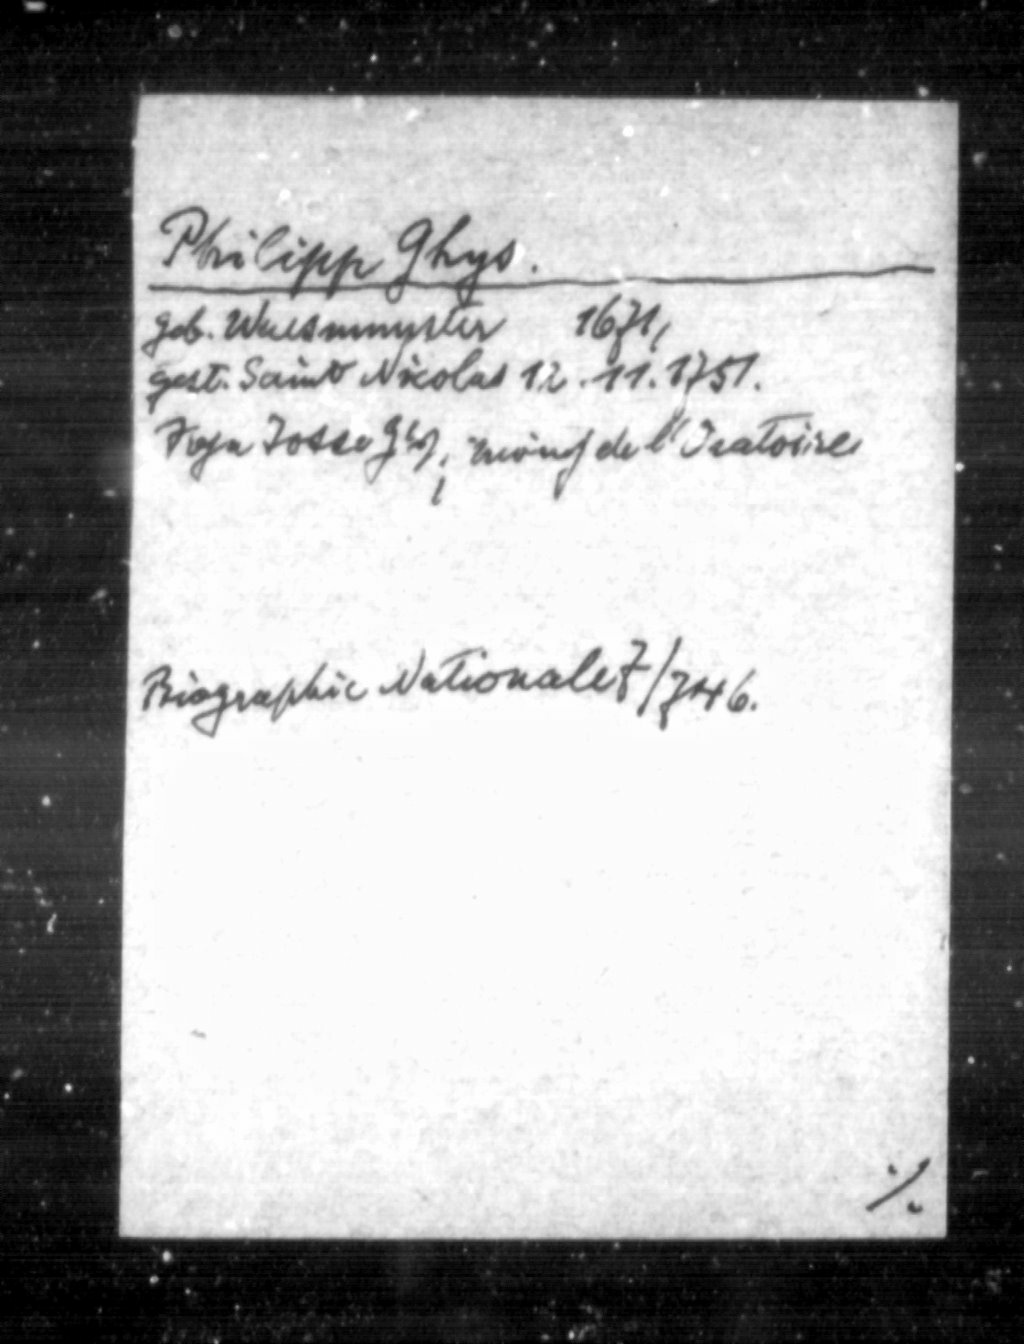 Philipp Ghys.
geb. Waesmunster 1671,
gest. Saint Nicolas 12.11.1751.
Josse Ghys, de l'Oratoire
Biographie Nationale 7/746.
./.